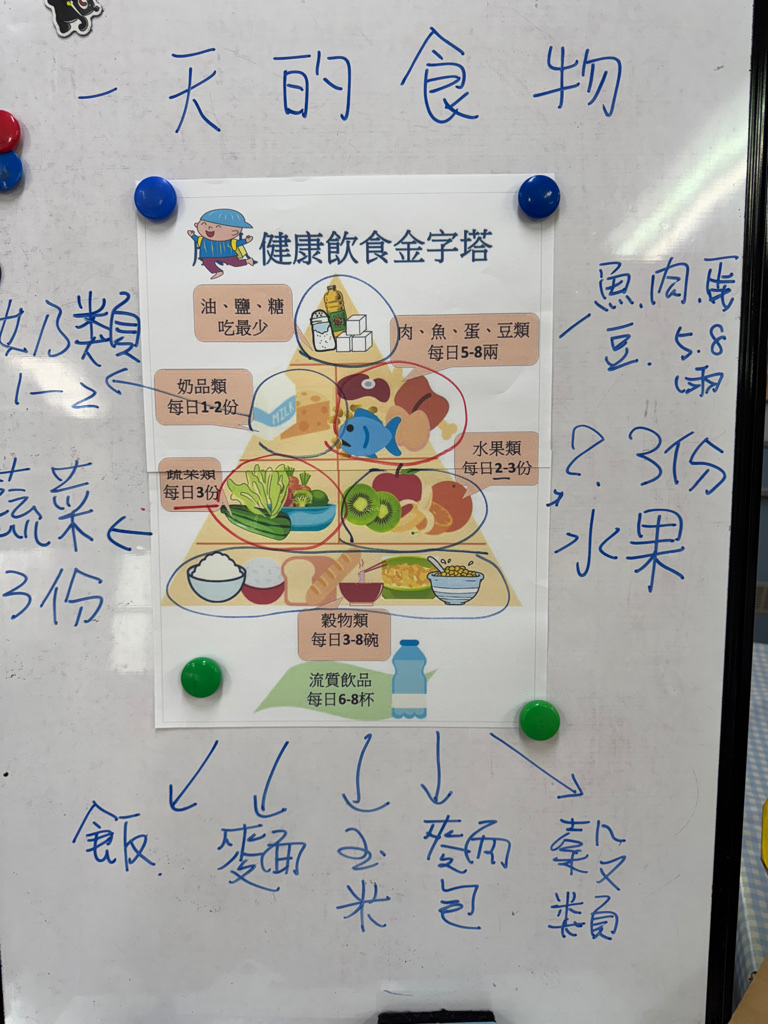 一天的食物
健康飲食金字塔
油、鹽、糖
吃最少
肉、魚、蛋、豆類
每日5-8兩
魚.肉.蛋
豆. 5.8
兩
奶類
1-2
奶品類
每日1-2份
MILK
水果類
每日2-3份
2.3份
水果
蔬菜類
每日3份
蔬菜
3份
穀物類
每日3-8碗
流質飲品
每日6-8杯
飯.
麵
玉米
麵包
穀類